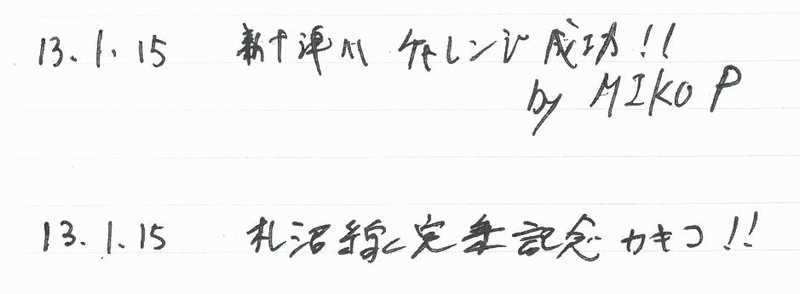 13.1.15 新十津川 チャレンジ成功!!
by MIKO P
13.1.15 札沼線完乗記念カキコ!!